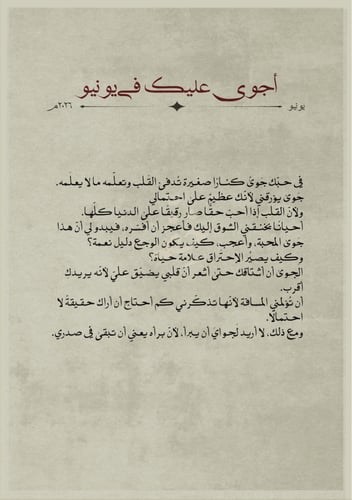 أجوى عليك في يونيو
يونيو
٢٠٢٦م
في حبّك جوىً كنارٍ صغيرة تُدفئ القلب وتعلّمه ما لا يعلمه.
جوى يؤرقني لأنك عظيمٌ على احتمالي
ولأن القلب إذا أحبّ حقًا صار رقيقًا على الدنيا كلّها.
أحيانًا يخنقني الشوق إليك فأعجز أن أفسّره، فيبدو لي أنّ هذا
جوى المحبة، وأعجب، كيف يكون الوجع دليل نعمة؟
وكيف يصير الاحتراق علامة حياة؟
الجوى أن أشتاقك حتى أشعر أنّ قلبي يضيّق عليّ لأنه يريدك
أقرب.
أن تؤلمني المسافة لأنها تذكّرني كم أحتاج أن أراك حقيقةً لا
احتمالًا.
ومع ذلك، لا أريد لجواي أن يبرأ، لأنّ برأه يعني أن تبقى في صدري.